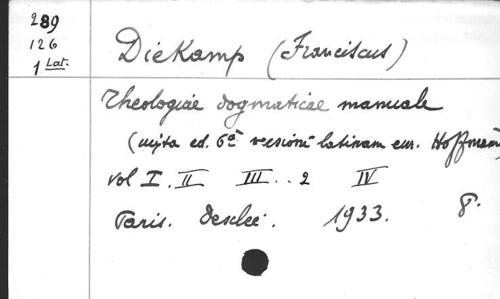 289
126
1 Lat.
Diekamp (Franciscus)
Theologiae dogmaticae manuale
(iuxta ed. 6ª versionē latinam cur. Hoffmann
vol I. II III..2 IV
Paris. Desclée. 1933. 8º.